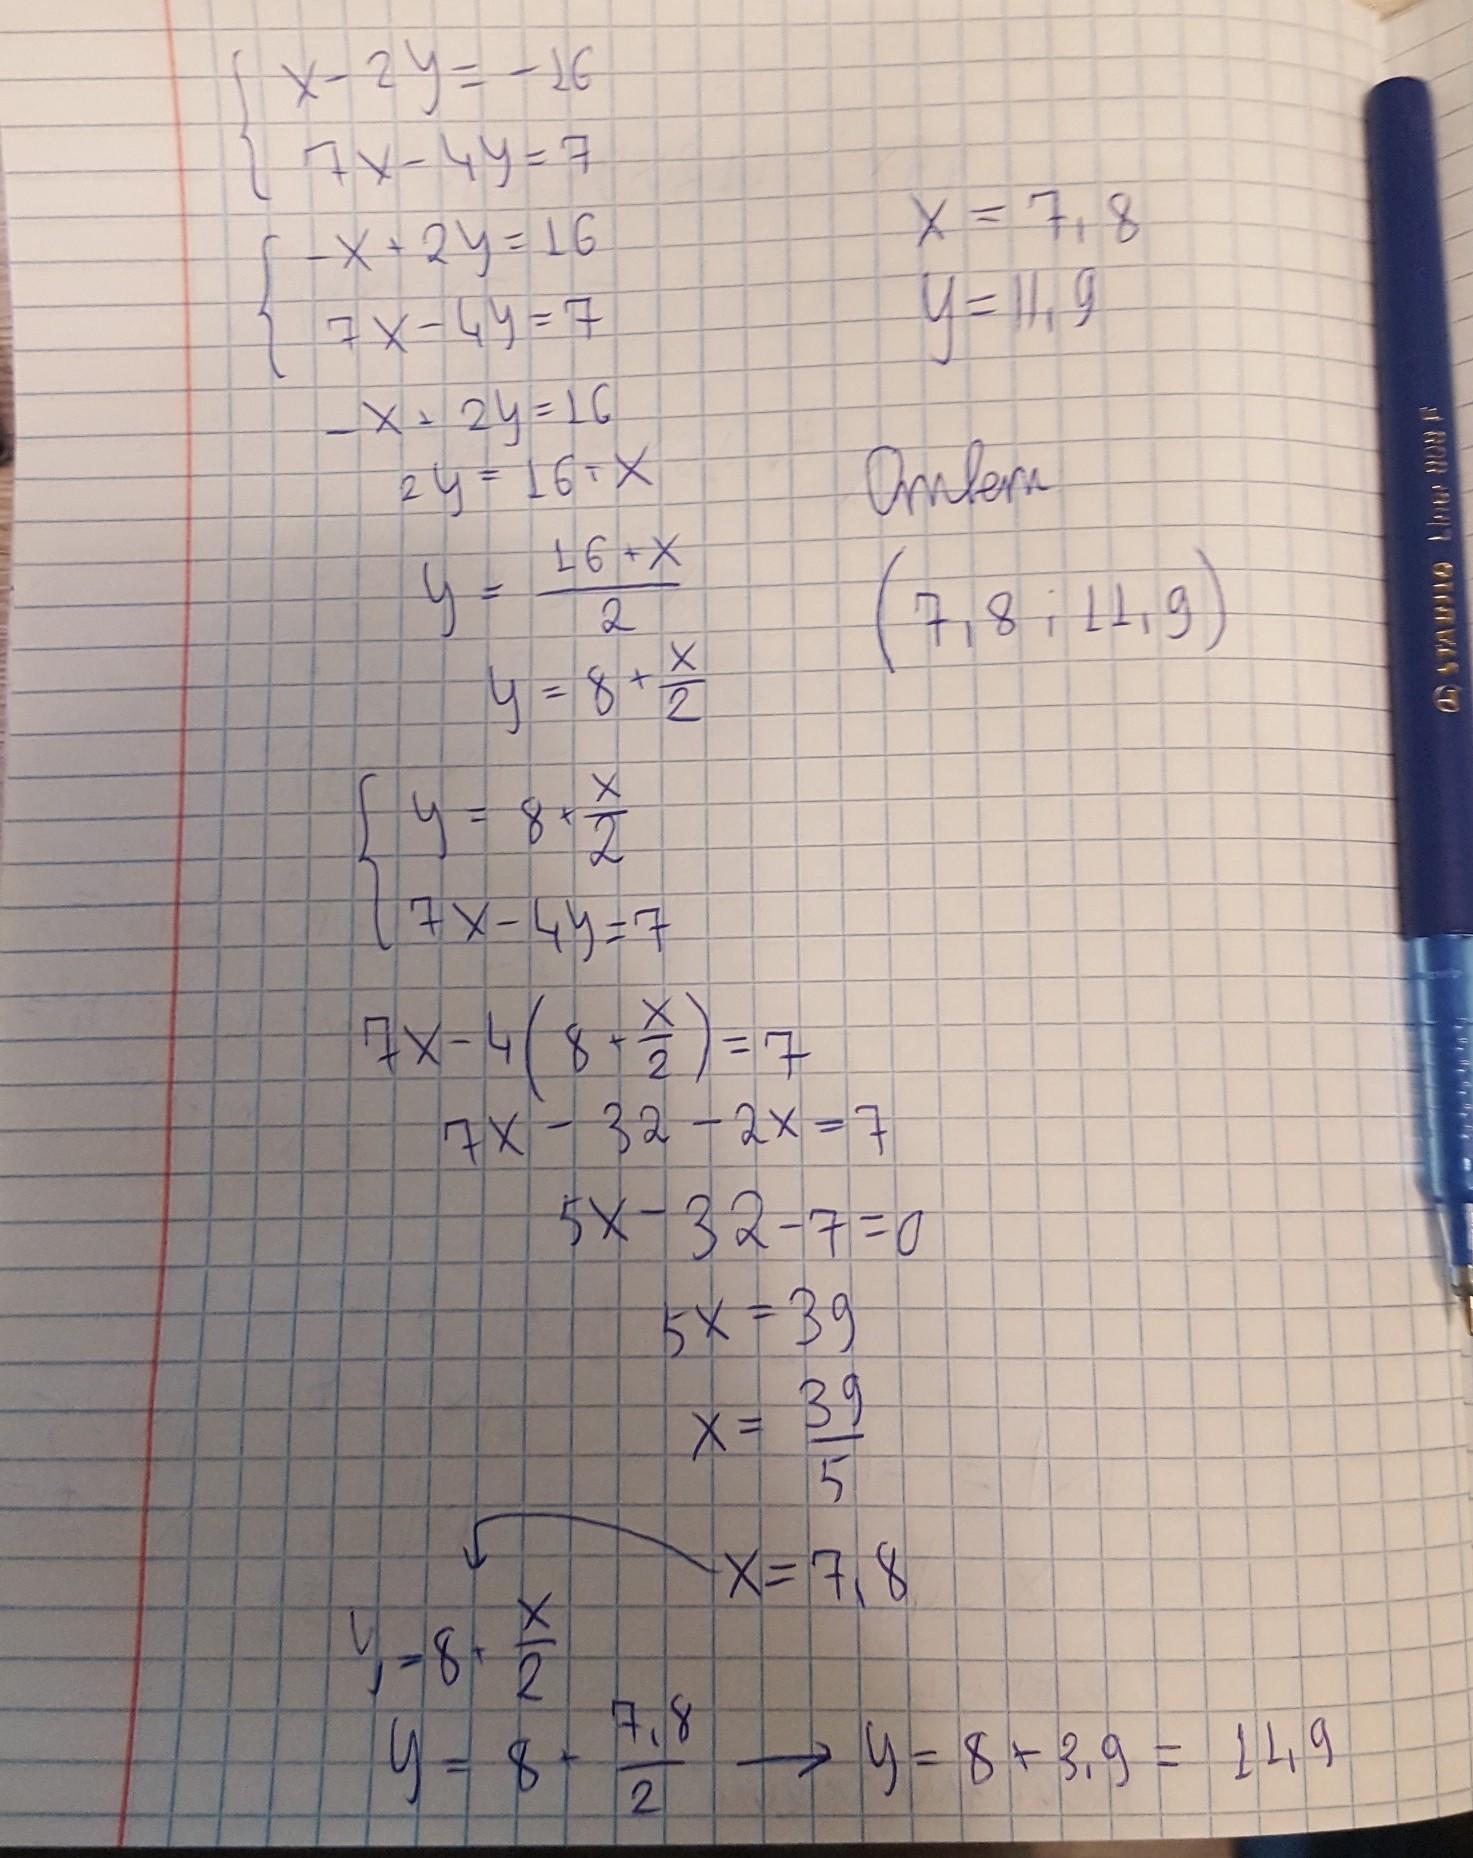 x - 2y = -16
7x - 4y = 7
-x + 2y = 16
7x - 4y = 7
-x + 2y = 16
2y = 16 + x
y = \frac{16 + x}{2}
y = 8 + \frac{x}{2}
y = 8 + \frac{x}{2}
7x - 4y = 7
7x - 4(8 + \frac{x}{2}) = 7
7x - 32 - 2x = 7
5x - 32 - 7 = 0
5x = 39
x = \frac{39}{5}
x = 7,8
y = 8 + \frac{x}{2}
y = 8 + \frac{7,8}{2} → y = 8 + 3,9 = 11,9
x = 7,8
y = 11,9
Ответ
(7,8 ; 11,9)
STABILO Liner 808 F